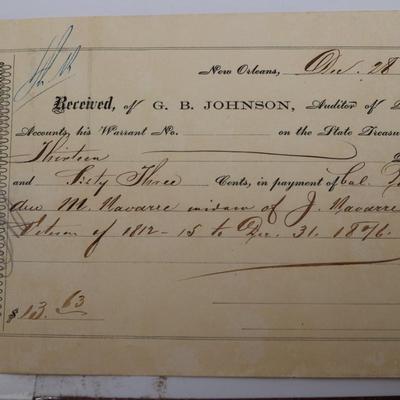 New Orleans, Dec. 28
Received, of G. B. JOHNSON, Auditor of
Accounts, his Warrant No. on the State Treasu
Thirteen
and Sixty Three Cents, in payment of
due M. Navarre widow of J. Navarre
Veteran of 1812-15 to Dec. 31. 1876.
$ 13.63